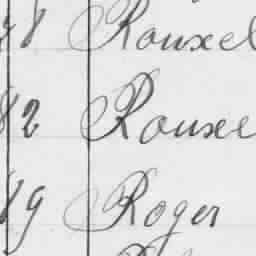 78 Rouxel
82 Rouxe
89 Roger